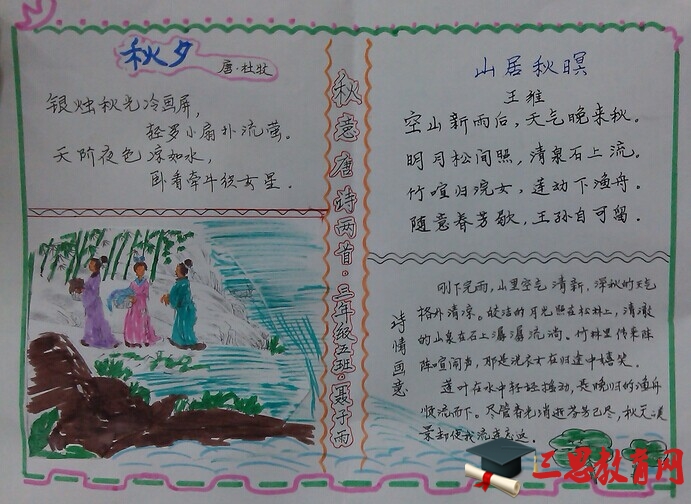 秋夕
唐·杜牧
银烛秋光冷画屏,
轻罗小扇扑流萤。
天阶夜色凉如水,
卧看牵牛织女星.
秋意唐诗两首·三年级五班·聂子雨
山居秋暝
王维
空山新雨后,天气晚来秋。
明月松间照,清泉石上流。
竹喧归浣女,莲动下渔舟。
随意春芳歇,王孙自可留.
诗情画意
刚下完雨,山里空气清新,深秋的天气
格外清凉。皎洁的月光照在松林上,清澈
的山泉在石上潺潺流淌。竹林里传来阵
阵喧闹声,那是洗衣女在归途中嬉笑。
莲叶在水中轻轻摇动,是晚归的渔舟
顺流而下。尽管春光消逝芬芳已尽,秋天美
景却使我流连忘返。
三思教育网